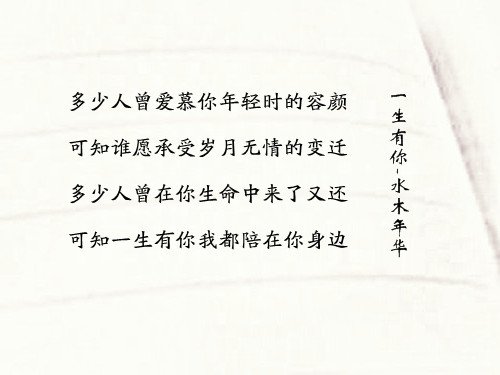 多少人曾爱慕你年轻时的容颜
可知谁愿承受岁月无情的变迁
多少人曾在你生命中来了又还
可知一生有你我都陪在你身边
一生有你-水木年华